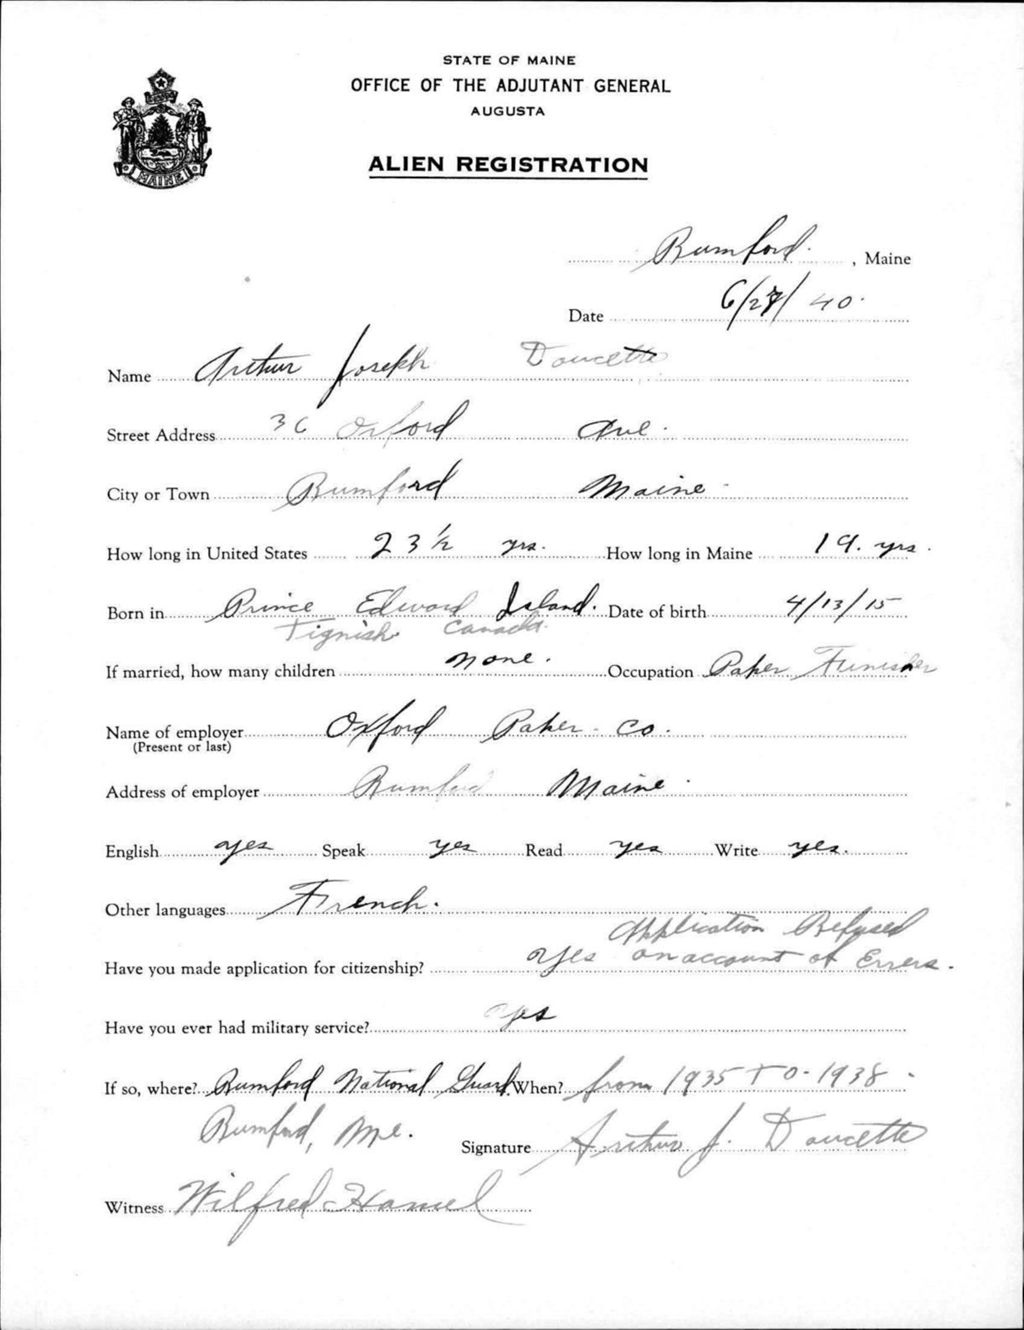 STATE OF MAINE
OFFICE OF THE ADJUTANT GENERAL
AUGUSTA
MAINE
ALIEN REGISTRATION
Rumford. , Maine
Date 6/27/40.
Name Arthur Joseph Doucette
Street Address 36 Oxford Ave.
City or Town Rumford Maine
How long in United States 23 1/2 yrs. How long in Maine 19. yrs.
Born in Prince Edward Island. Date of birth 4/13/15
Tignish Canada
If married, how many children none. Occupation Paper Finisher
Name of employer Oxford Paper Co.
(Present or last)
Address of employer Rumford Maine
English yes Speak yes Read yes Write yes.
Other languages French.
Application Refused
Have you made application for citizenship? yes on account of Errers.
Have you ever had military service? yes
If so, where? Rumford National Guard. When? from 1935 TO-1938
Rumford, Me.
Signature Arthur J. Doucette
Witness Wilfred Hamel